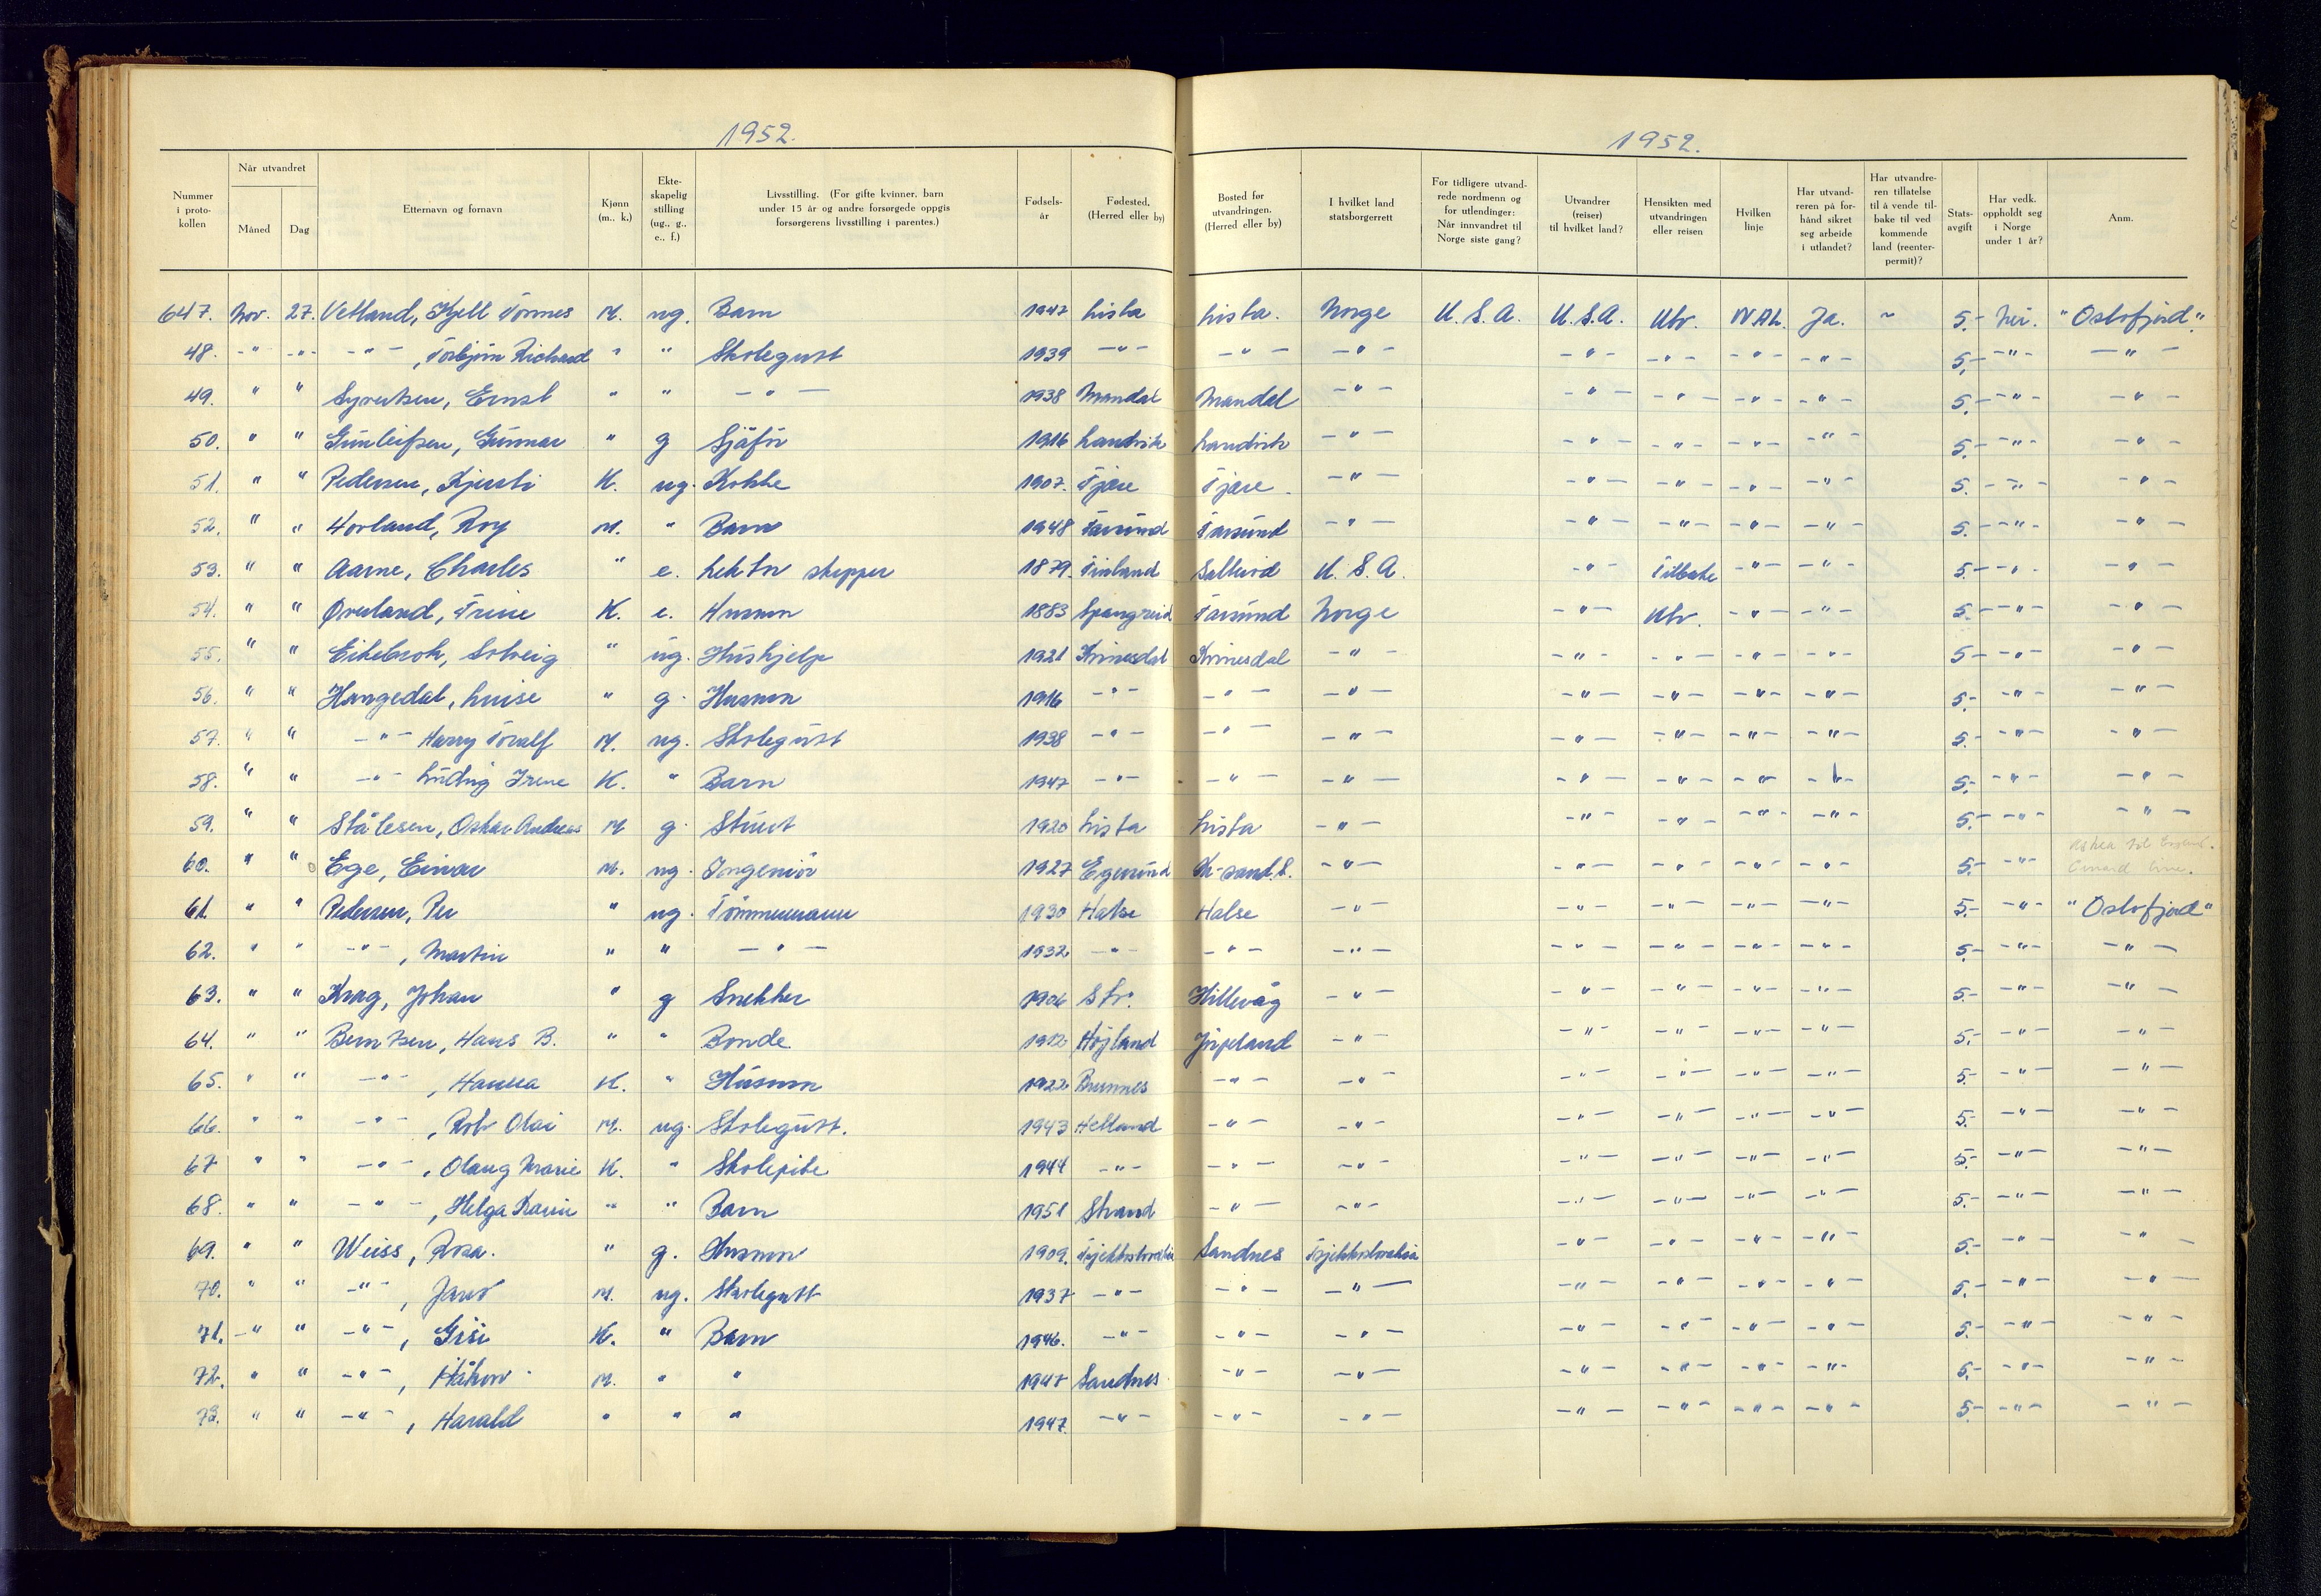 1952.
1952.
Nummer i proto-kollen | Når utvandret Måned Dag | Etternavn og fornavn | Kjønn (m., k.) | Ekte-skapelig stilling (ug., g., e., f.) | Livsstilling. (For gifte kvinner, barn under 15 år og andre forsørgede oppgis forsørgerens livsstilling i parentes.) | Fødsels-år | Fødested. (Herred eller by) | Bosted før utvandringen. (Herred eller by) | I hvilket land statsborgerrett | For tidligere utvand-rede nordmenn og for utlendinger: Når innvandret til Norge siste gang? | Utvandrer (reiser) til hvilket land? | Hensikten med utvandringen eller reisen | Hvilken linje | Har utvand-reren på for-hånd sikret seg arbeide i utlandet? | Har utvandre-ren tillatelse til å vende til-bake til ved kommende land (reenter-permit)? | Stats-avgift | Har vedk. oppholdt seg i Norge under 1 år? | Anm.
647. Nov. 27. Vetland, Kjell Tormes M. ug. Barn 1947 Lista Lista. Norge U.S.A. U.S.A. Utv. NAL. Ja. ~ 5.- Nei. "Oslofjord".
48. -"- -"- -"-, Torbjørn Richard " " Skolegutt 1939 -"- -"- -"- -"- -"- -"- -"- 5.- -"- -"-
49. " " Syvertsen, Ernst " " -"- 1938 Mandal Mandal -"- -"- -"- -"- -"- 5.- -"- -"-
50. " " Gunleifsen, Gunnar " g Sjåfør 1916 Landvik Landvik -"- -"- -"- -"- -"- 5.- -"- -"-
51. " " Pedersen, Kjersti K. ug. Kokke 1907. Tjøre Tjøre -"- -"- -"- -"- -"- 5.- -"- -"-
52. " " Hovland, Roy M. " Barn 1948 Farsund Farsund -"- -"- -"- -"- -"- 5.- -"- -"-
53. " " Aarne, Charles " e. Lektor skipper 1879. Finland U.S.A. -"- Tilbake -"- -"- 5.- -"- -"-
54. " " Øverland, Trine K. e. Husmor 1883 Spangreid Farsund Norge -"- Utv. -"- -"- 5.- -"- -"-
55. " " Eikebrok, Solveig " ug. Hushjelp 1921 Kvinesdal Kvinesdal -"- -"- -"- -"- -"- 5.- -"- -"-
56. " " Haugedal, Luise " g. Husmor 1916 -"- -"- -"- -"- -"- -"- -"- 5.- -"- -"-
57. " " -"- Harry Toralf M. ug. Skolegutt 1938 -"- -"- -"- -"- -"- -"- -"- 5.- -"- -"-
58. " " -"- Ludvig Irene K. " Barn 1947 -"- -"- -"- -"- -"- -"- -"- 5.- -"- -"-
59. " " Stålesen, Oskar Andreas M g. Stuert 1920 Lista Lista -"- -"- -"- -"- -"- 5.- -"- -"-
60. " " Ege, Einar M. ug. Ingeniör 1927 Egersund Kr-sand.S. -"- -"- -"- -"- -"- 5.- -"- Cunard Line.
61. " " Pedersen, Per " ug. Tömmermann 1930 Halse Halse -"- -"- -"- -"- -"- 5.- -"- "Oslofjord"
62. " " -"-, Martin " " -"- 1932 -"- -"- -"- -"- -"- -"- -"- 5.- -"- -"-
63. " " Krag, Johan " g Snekker 1906 Str. Hillevåg -"- -"- -"- -"- -"- 5.- -"- -"-
64. " " Berntsen, Hans B. " " Bonde 1912 Högland Jörpeland -"- -"- -"- -"- -"- 5.- -"- -"-
65. " " -"-, Hanna K. " Husmor 1922 Brunnes -"- -"- -"- -"- -"- -"- 5.- -"- -"-
66. " " -"-, Rolv Olai M. ug. Skolegutt. 1943 Helland -"- -"- -"- -"- -"- -"- 5.- -"- -"-
67 " " -"-, Olaug Marie K. " Skolepike 1944 -"- -"- -"- -"- -"- -"- -"- 5.- -"- -"-
68. " " -"-, Helga Karin " " Barn 1951 Strand -"- -"- -"- -"- -"- -"- 5.- -"- -"-
69. " " Weiss, Rosa. " g. Husmor 1909. Tsjekkoslovakia Sandnes Tsjekkoslovakia -"- -"- -"- -"- 5.- -"- -"-
70. " " -"-, M. ug. Skolegutt 1937 -"- -"- -"- -"- -"- -"- -"- 5.- -"- -"-
71. -" " -"-, Gisi K. " Barn 1946. -"- -"- -"- -"- -"- -"- -"- 5.- -"- -"-
72. " " -"-, Håkon M. " " 1947 Sandnes -"- -"- -"- -"- -"- -"- 5.- -"- -"-
73. " " -"-, Harald " " " 1947. -"- -"- -"- -"- -"- -"- -"- 5.- -"- -"-